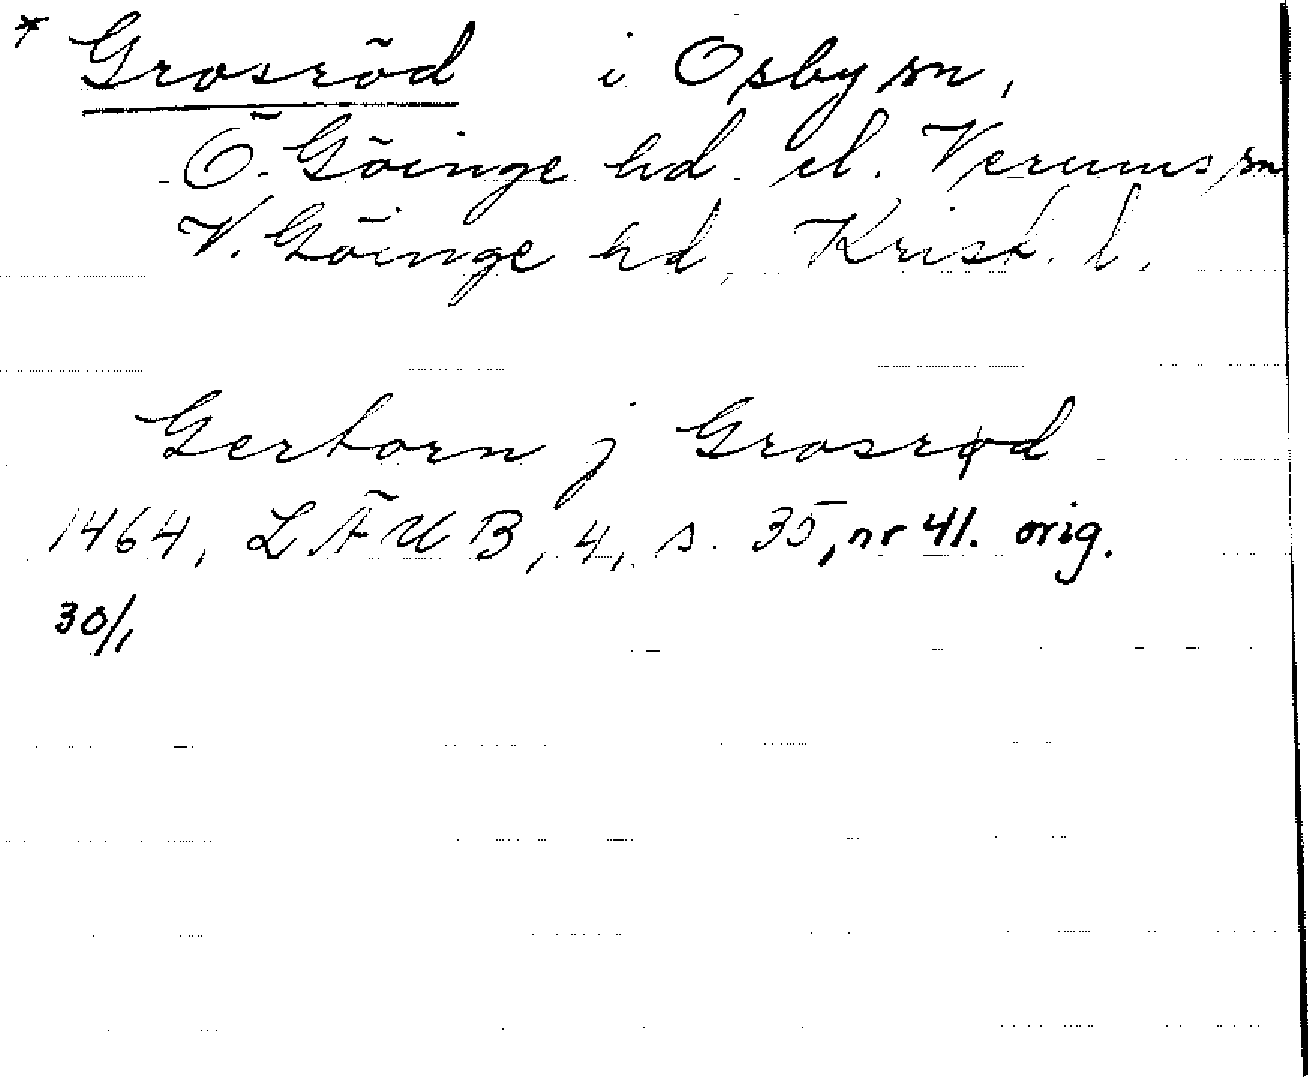 * Grosröd i Osby sn,
Ö. Göinge hd. el. Verums sn
V. Göinge hd, Krist. l.
Gertorn j Grosrød
1464, LÄUB, 4, s. 35, nr 41. orig.
30/1